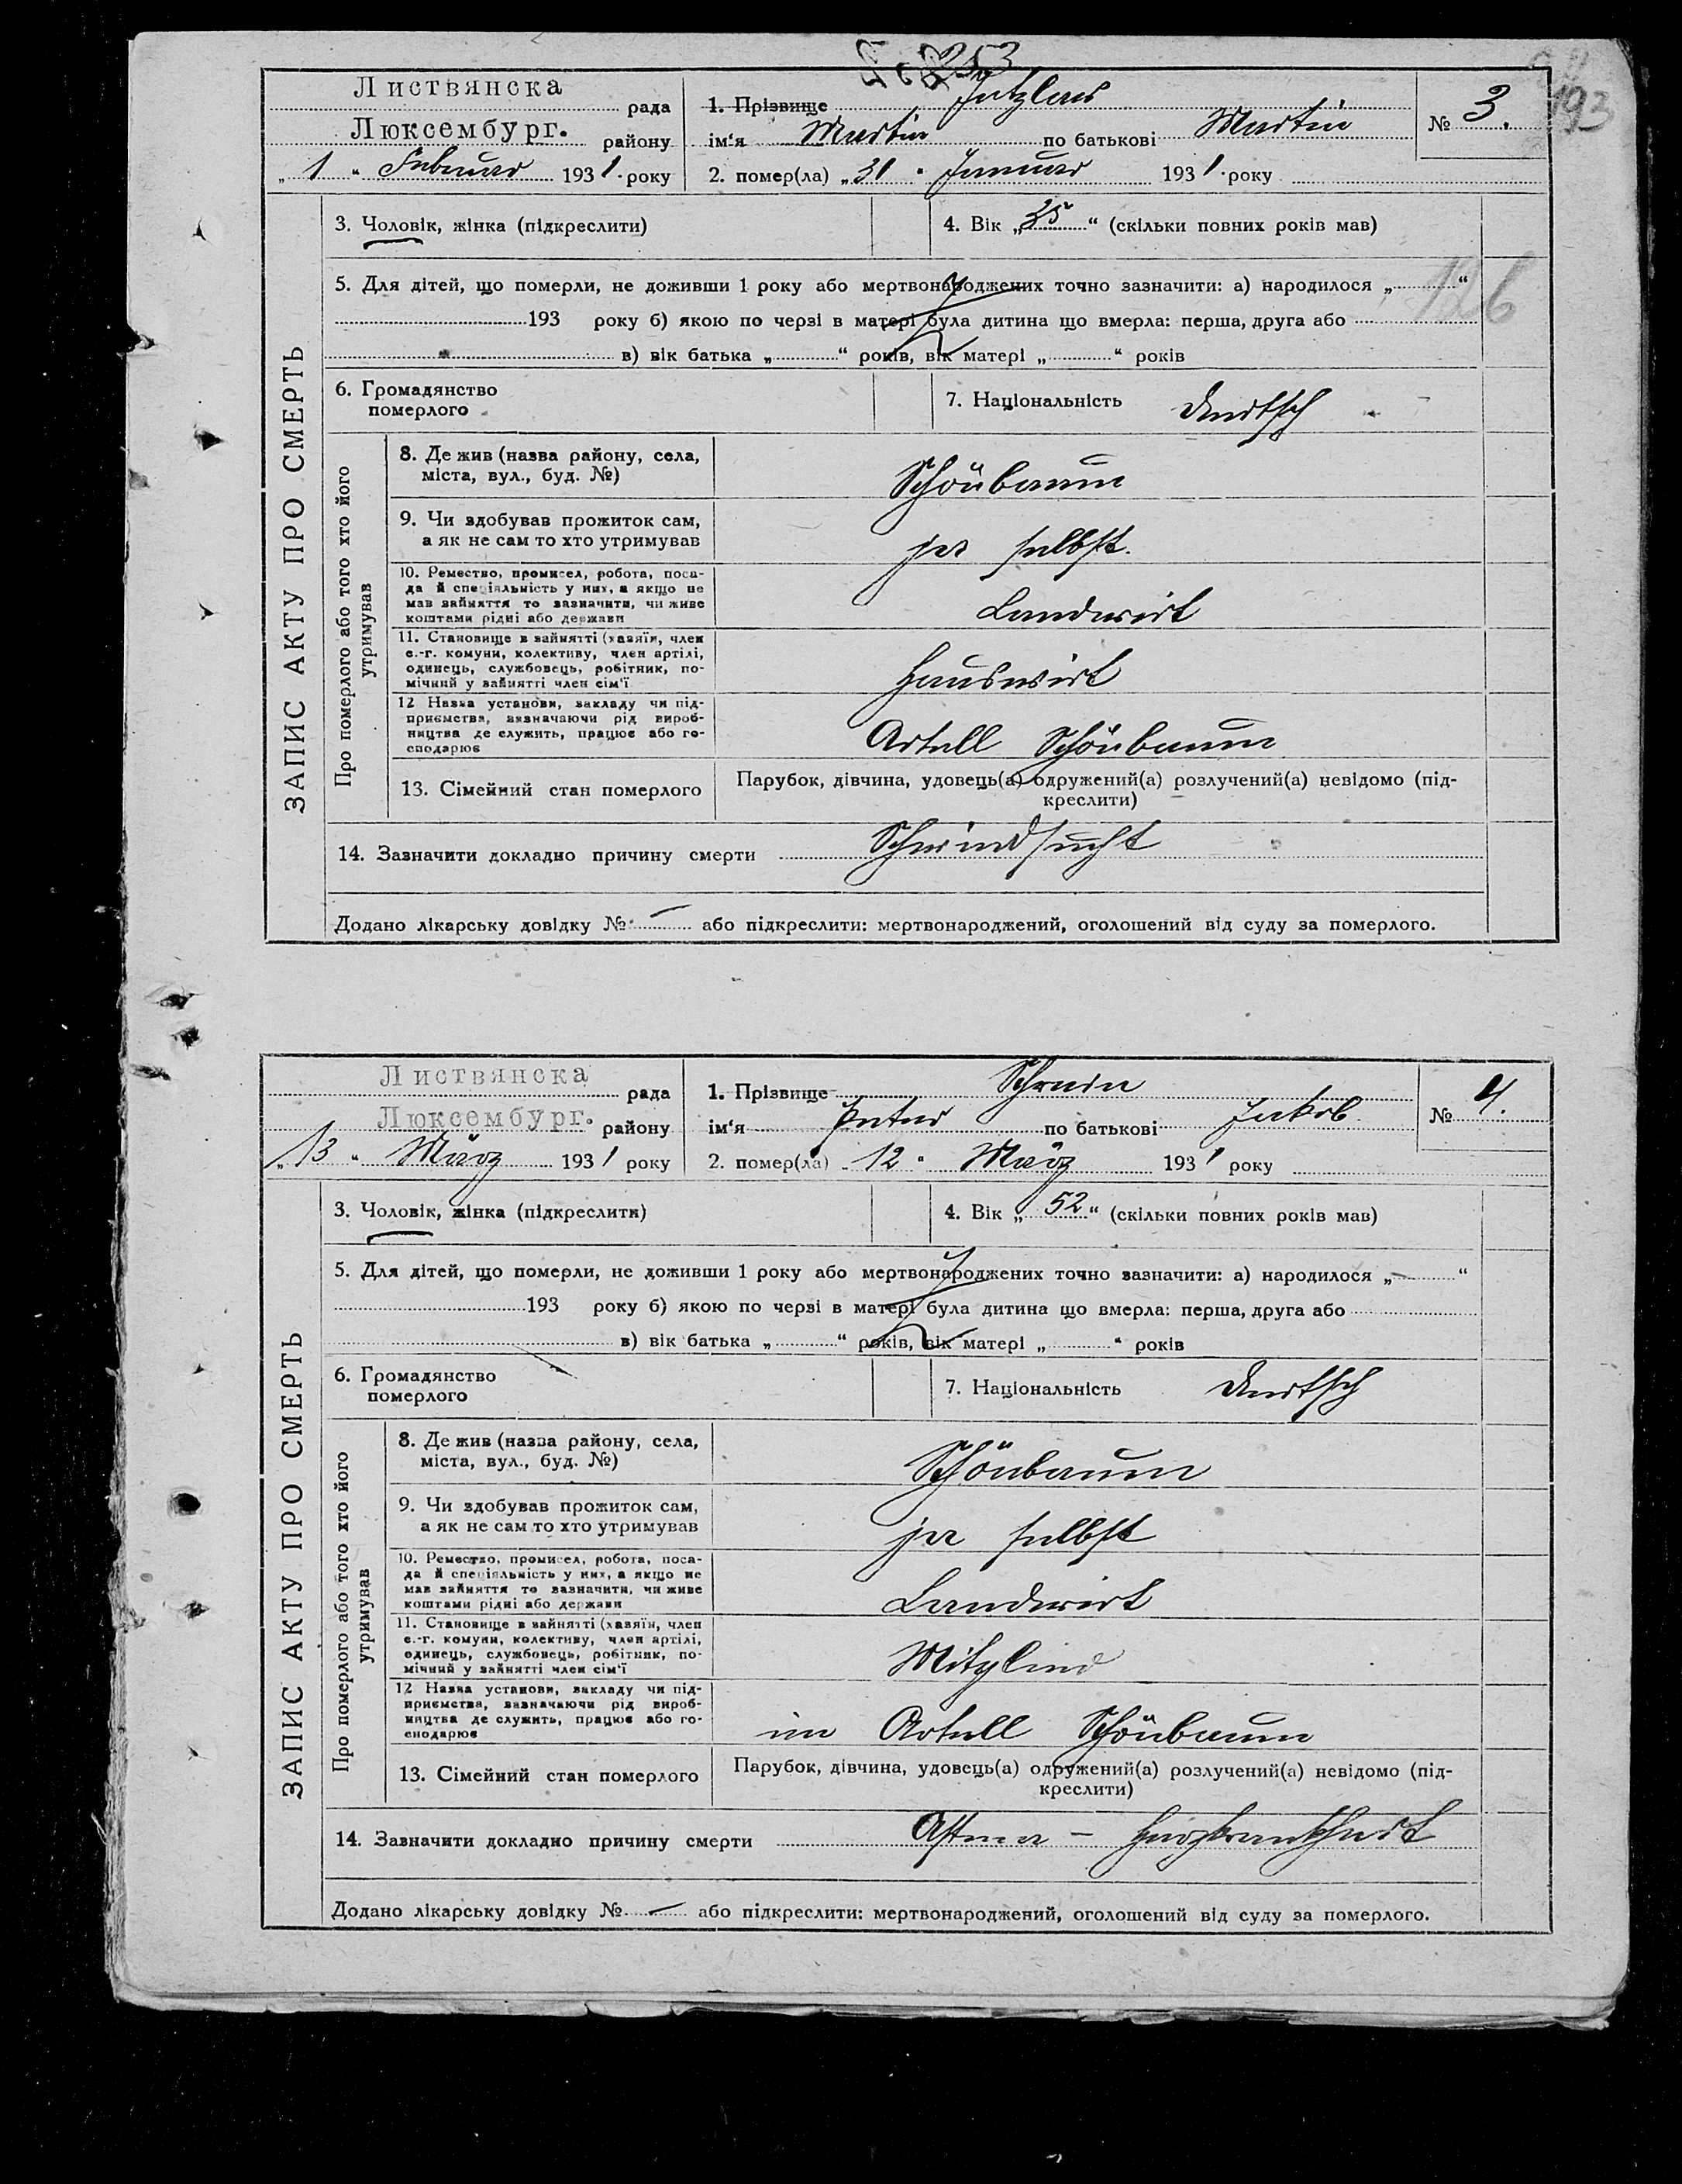 193
Листвянска рада
Люксембург. району
„1“ Februar 1931 року
1. Прізвище
ім‘я Martin по батькові Martin
2. помер(ла) „31“ Januar 1931 року
№ 3.
ЗАПИС АКТУ ПРО СМЕРТЬ
3. Чоловік, жінка (підкреслити)
4. Вік „35“ (скільки повних років мав)
5. Для дітей, що померли, не доживши 1 року або мертвонароджених точно зазначити: а) народилося „ “
126
193 року б) якою по черзі в матері була дитина що вмерла: перша, друга або
в) вік батька „ “ років, вік матері „ “ років
6. Громадянство
померлого
7. Національність Deutsch
Про померлого або того хто його
утримував
8. Де жив (назва району, села,
міста, вул., буд. №)
Schönbaum
9. Чи здобував прожиток сам,
а як не сам то хто утримував
ja selbst.
10. Ремество, промисел, робота, поса-
да й спеціяльність у них, а якщо не
мав зайняття то зазначити, чи живе
коштами рідні або держави
Landwirt
11. Становище в зайнятті (хазяїн, член
с.-г. комуни, колективу, член артілі,
одинець, службовець, робітник, по-
мічний у зайнятті член сім‘ї
Hauswirt
12 Назва установи, закладу чи під-
приємства, зазначаючи рід вироб-
ництва де служить, працює або го-
сподарює
Artell Schönbaum
13. Сімейний стан померлого
Парубок, дівчина, удовець(а) одружений(а) розлучений(а) невідомо (під-
креслити)
14. Зазначити докладно причину смерти Schwindsucht
Додано лікарську довідку № — або підкреслити: мертвонароджений, оголошений від суду за померлого.
Листвянска рада
Люксембург. району
„13“ März 1931 року
1. Прізвище
ім‘я Peter по батькові Jakob
2. помер(ла) „12“ März 1931 року
№ 4.
ЗАПИС АКТУ ПРО СМЕРТЬ
3. Чоловік, жінка (підкреслити)
4. Вік „52“ (скільки повних років мав)
5. Для дітей, що померли, не доживши 1 року або мертвонароджених точно зазначити: а) народилося „ “
193 року б) якою по черзі в матері була дитина що вмерла: перша, друга або
в) вік батька „ “ років, вік матері „ “ років
6. Громадянство
померлого
7. Національність Deutsch
Про померлого або того хто його
утримував
8. Де жив (назва району, села,
міста, вул., буд. №)
Schönbaum
9. Чи здобував прожиток сам,
а як не сам то хто утримував
ja selbst
10. Ремество, промисел, робота, поса-
да й спеціяльність у них, а якщо не
мав зайняття то зазначити, чи живе
коштами рідні або держави
Landwirt
11. Становище в зайнятті (хазяїн, член
с.-г. комуни, колективу, член артілі,
одинець, службовець, робітник, по-
мічний у зайнятті член сім‘ї
Mitglied
12 Назва установи, закладу чи під-
приємства, зазначаючи рід вироб-
ництва де служить, працює або го-
сподарює
im Artell Schönbaum
13. Сімейний стан померлого
Парубок, дівчина, удовець(а) одружений(а) розлучений(а) невідомо (під-
креслити)
14. Зазначити докладно причину смерти Astma – Herzkrankheit
Додано лікарську довідку № — або підкреслити: мертвонароджений, оголошений від суду за померлого.